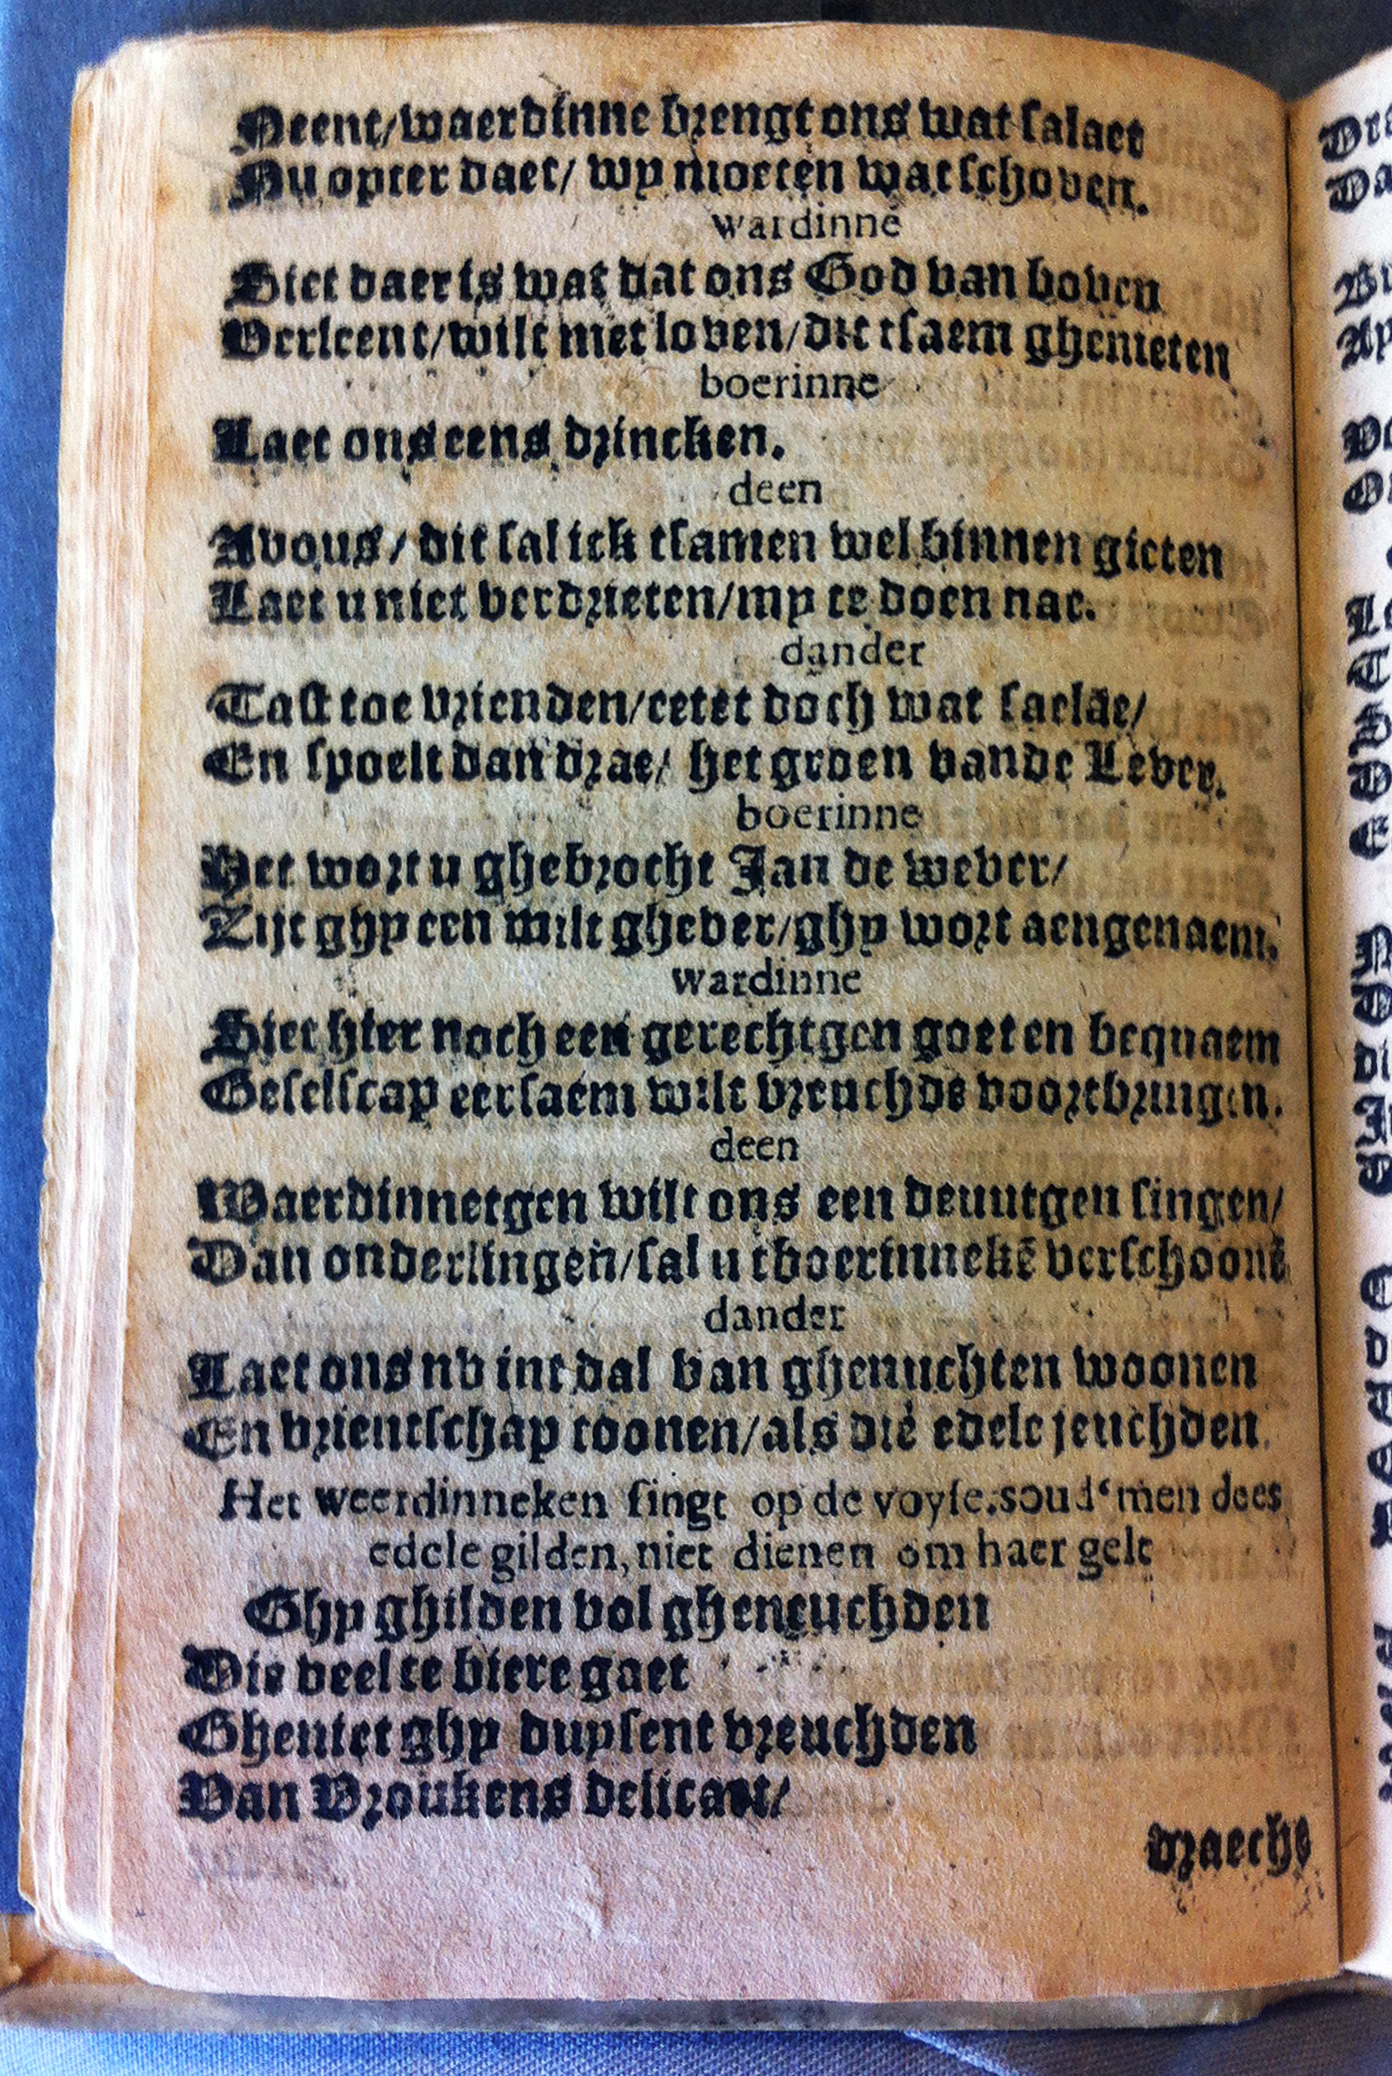 Neent/waerdinne brengt ons wat salaet
Nu opter daet/ wy moeten wat schoven.
wardinne
Siet daer is wat dat ons God van boven
Verleent/wilt met loven/dit tsaem ghenieten
boerinne
Laet ons eens drincken.
deen
Avous/ dit sal ick tsamen wel binnen gieten
Laet u niet verdrieten/my te doen nae.
dander
Tast toe vrienden/eetet doch wat saelae/
En spoelt dan drae/ het groen vande Lever.
boerinne
Het wort u ghebrocht Jan de wever/
Zijt ghy een milt ghever/ghy wort aengenaem.
wardinne
Siet hier noch een gerechtgen goet en bequaem
Geselscap eersaem wilt vreuchde voortbringen.
deen
Waerdinnetgen wilt ons een deuntgen singen/
Dan onderlingen/sal u tboerinnekē verschoonē
dander
Laet ons nv int dal van ghenuchten woonen
En vrientschap toonen/als die edele jeuchden
Het weerdinneken singt op de voyse. soud'men dees
edele gilden, niet dienen om haer gelt
Ghy ghilden vol gheneuchden
Die veel te biere gaet
Gheniet ghy duysent vreuchden
Van Vroukens delicaet/
draecht